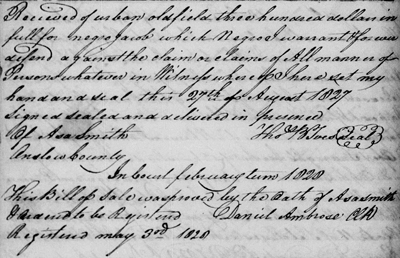 Received of urban oldfield three hundred dollars in
full for Negro Jacob which Negro I warrant & forever
defend against the claim or claims of All manner of
Persons whatever in Witness where of I have set my
hand and seal this 27th of August 1827
signed sealed and delivered in presence
Of Asa Smith Tho
Onslow County
In Court february term 1828
This Bill of Sale was proved by the Oath of Asa Smith
& ordered to be Registered Daniel Ambrose
Registered may 3rd 1828